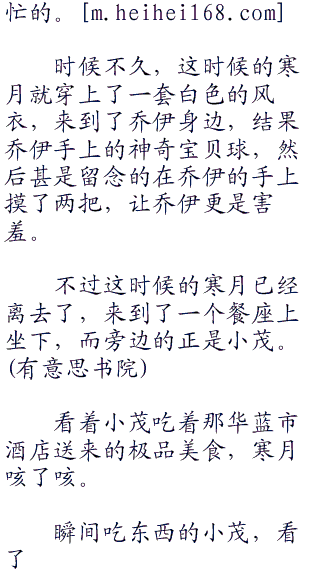 忙的。[m.heihei168.com]
时候不久，这时候的寒
月就穿上了一套白色的风
衣，来到了乔伊身边，结果
乔伊手上的神奇宝贝球，然
后甚是留念的在乔伊的手上
摸了两把，让乔伊更是害
羞。
不过这时候的寒月已经
离去了，来到了一个餐座上
坐下，而旁边的正是小茂。
(有意思书院)
看着小茂吃着那华蓝市
酒店送来的极品美食，寒月
咳了咳。
瞬间吃东西的小茂，看
了